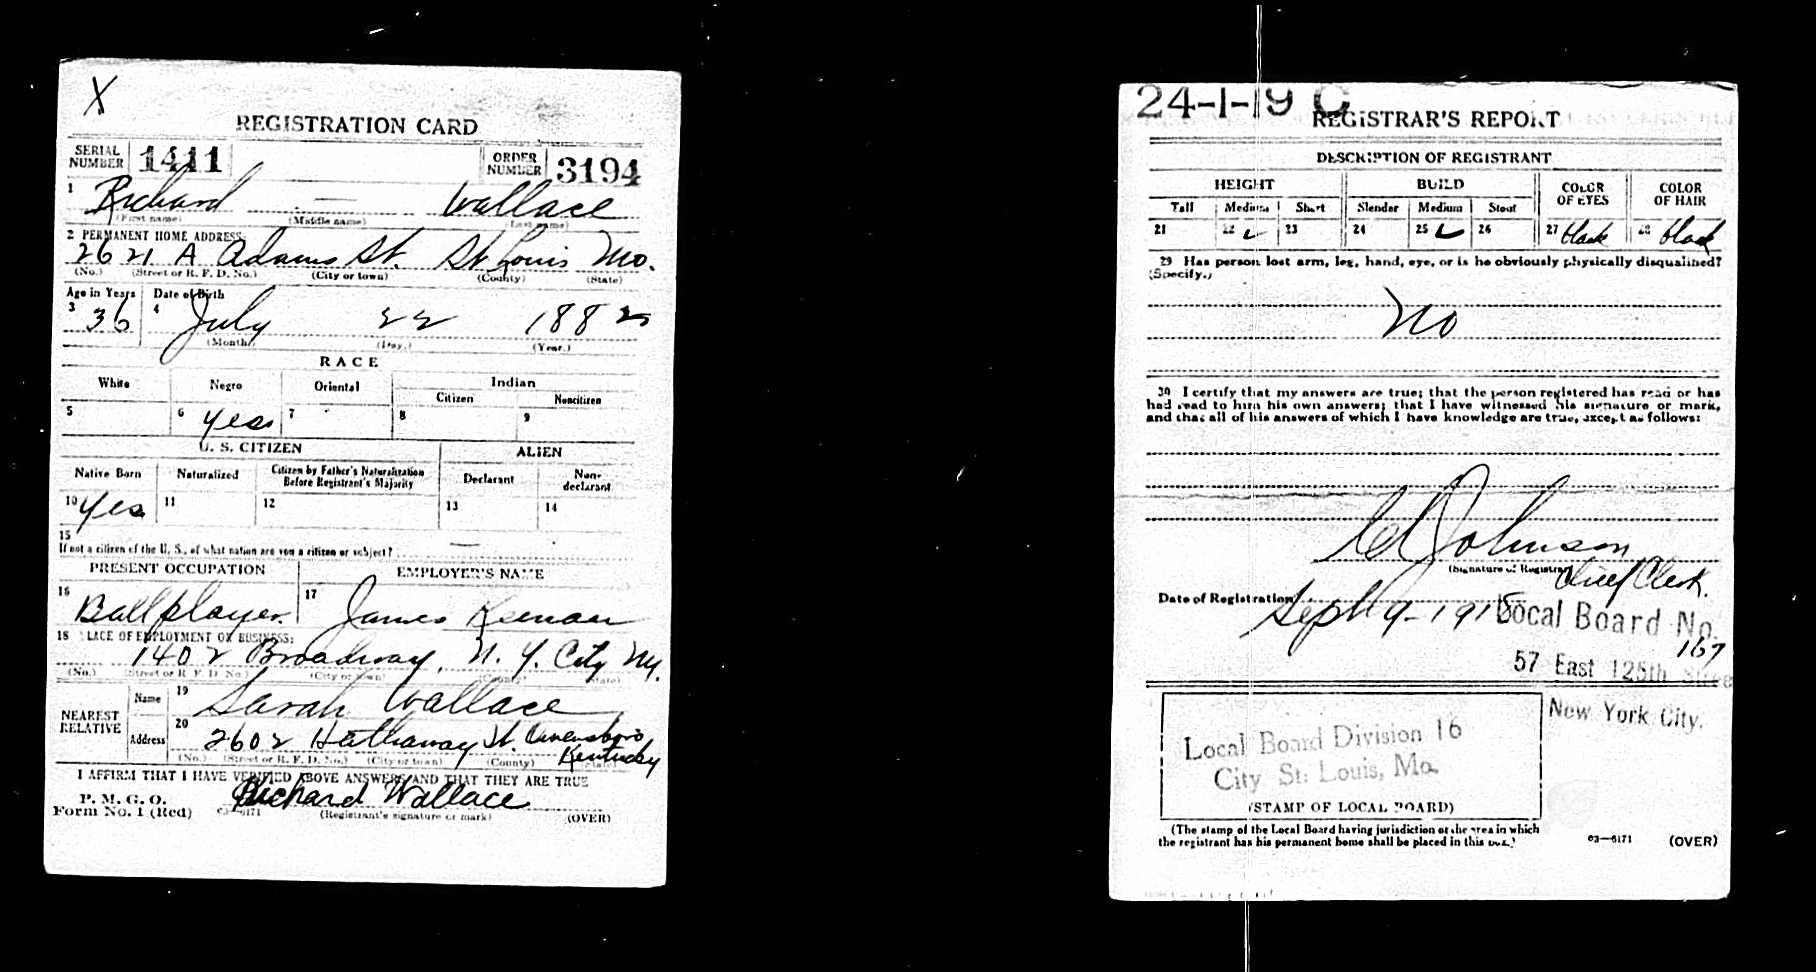 X
REGISTRATION CARD
SERIAL NUMBER 1411 ORDER NUMBER 3194
1 Richard — Wallace
(First name) (Middle name) (Last name)
2 PERMANENT HOME ADDRESS:
2621 A Adams St. St Louis Mo.
(No.) (Street or R. F. D. No.) (City or town) (County) (State)
Age in Years Date of Birth
3 36 4 July 22 1882
(Month.) (Day.) (Year.)
RACE
White Negro Oriental Indian
Citizen Noncitizen
5 6 yes 7 8 9
U. S. CITIZEN ALIEN
Native Born Naturalized Citizen by Father's Naturalization Before Registrant's Majority Declarant Non-declarant
10 yes 11 12 13 14
15
If not a citizen of the U. S., of what nation are you a citizen or subject? —
PRESENT OCCUPATION EMPLOYER'S NAME
16 Ballplayer. 17 James Keenan
18 PLACE OF EMPLOYMENT OR BUSINESS:
1402 Broadway, N. Y. City Ny.
(No.) (Street or R. F. D. No.) (City or town) (County) (State)
NEAREST RELATIVE Name 19 Sarah Wallace
Address 20 2602 Hathaway St. Owensboro Kentucky
(No.) (Street or R. F. D. No.) (City or town) (County) (State)
I AFFIRM THAT I HAVE VERIFIED ABOVE ANSWERS AND THAT THEY ARE TRUE
P. M. G. O.
Form No. 1 (Red) 03—6171 Richard Wallace
(Registrant's signature or mark) (OVER)
24-1-19 C
REGISTRAR'S REPORT
DESCRIPTION OF REGISTRANT
HEIGHT BUILD COLOR OF EYES COLOR OF HAIR
Tall Medium Short Slender Medium Stout
21 22 ✓ 23 24 25 ✓ 26 27 black 28 black
29 Has person lost arm, leg, hand, eye, or is he obviously physically disqualified?
(Specify.)
No
30 I certify that my answers are true; that the person registered has read or has
had read to him his own answers; that I have witnessed his signature or mark,
and that all of his answers of which I have knowledge are true, except as follows:
Johnson
(Signature of Registrar) Chief Clerk.
Date of Registration Sept 9-1918
Local Board No. 167
57 East 125th Street
New York City.
Local Board Division 16
City St. Louis, Mo.
(STAMP OF LOCAL BOARD)
(The stamp of the Local Board having jurisdiction of the area in which
the registrant has his permanent home shall be placed in this box.)
03—6171 (OVER)